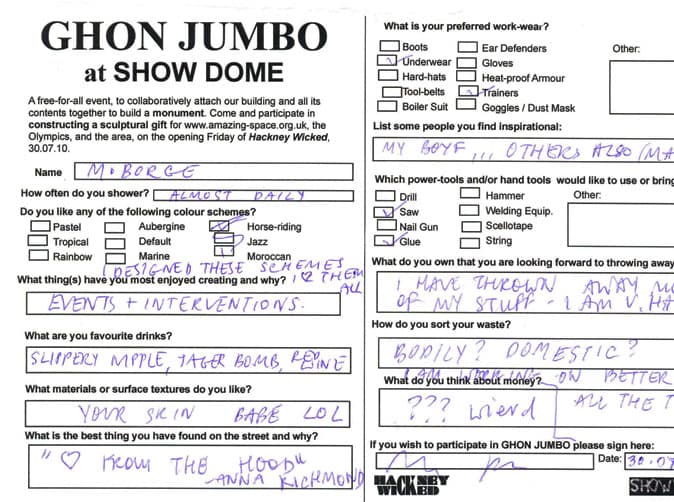 GHON JUMBO
at SHOW DOME
A free-for-all event, to collaboratively attach our building and all its
contents together to build a monument. Come and participate in
constructing a sculptural gift for www.amazing-space.org.uk, the
Olympics, and the area, on the opening Friday of Hackney Wicked,
30.07.10.
Name M. BORGE
How often do you shower? ALMOST DAILY
Do you like any of the following colour schemes?
Pastel Aubergine Horse-riding
Tropical Default Jazz
Rainbow Marine Moroccan
I DESIGNED THESE SCHEMES
I ♡ THEM ALL
What thing(s) have you most enjoyed creating and why?
EVENTS + INTERVENTIONS.
What are you favourite drinks?
SLIPPERY NIPPLE, JAGER BOMB, RED WINE
What materials or surface textures do you like?
YOUR SKIN BABE LOL
What is the best thing you have found on the street and why?
"♡ FROM THE HOOD"
- ANNA RICHMOND
What is your preferred work-wear?
Boots Ear Defenders Other:
Underwear Gloves
Hard-hats Heat-proof Armour
Tool-belts Trainers
Boiler Suit Goggles / Dust Mask
List some people you find inspirational:
MY BOYF,,, OTHERS ALSO (MA
Which power-tools and/or hand tools would like to use or bring
Drill Hammer Other:
Saw Welding Equip.
Nail Gun Scellotape
Glue String
What do you own that you are looking forward to throwing away
I HAVE THROWN AWAY
OF MY STUFF - I AM V. HA
How do you sort your waste?
BODILY? DOMESTIC?
I AM WORKING ON BETTER
What do you think about money?
??? wierd ALL THE T
If you wish to participate in GHON JUMBO please sign here:
Date: 30.07
HACKNEY
WICKED
SHOW